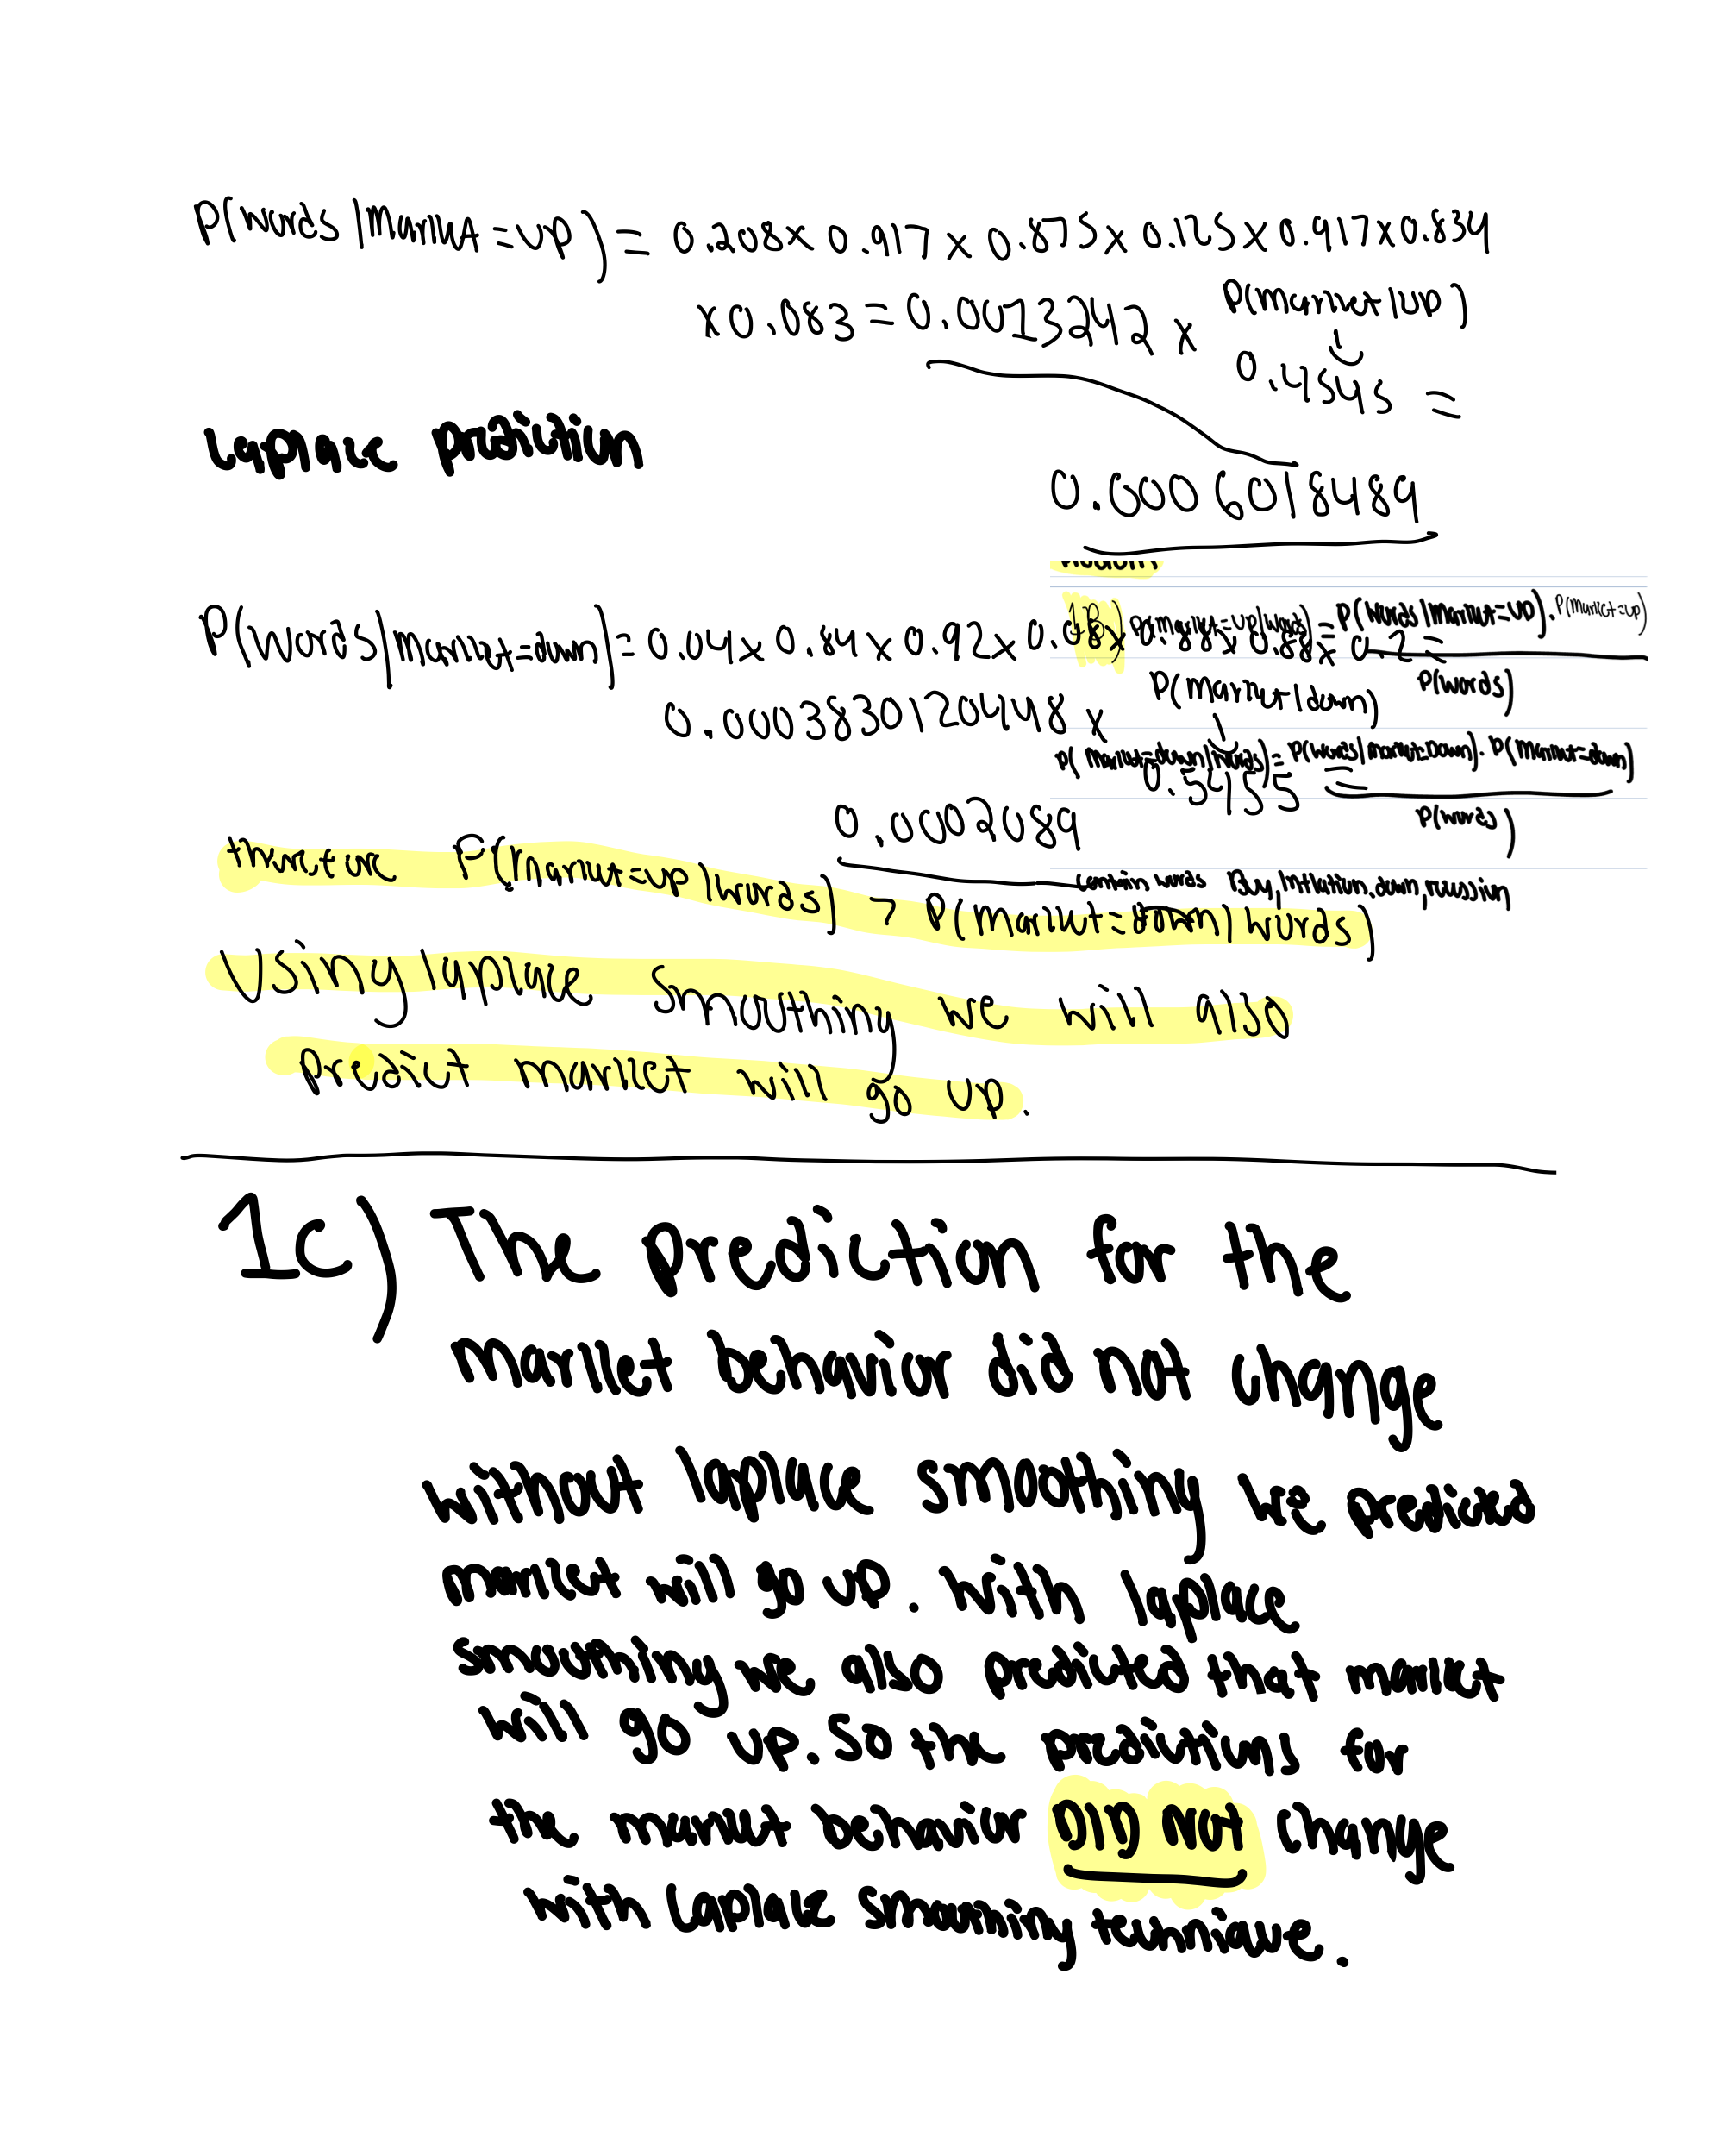 P(words|Market=up) = 0.208x 0.917 x 0.875 x 0.125 x 0.917 x 0.834
x 0.083 = 0.0013242 x P(market|up)
0.4545 =
Laplace prediction
0.0006018489
P(words|market=down) = 0.04x 0.84 x 0.92 x 0.08x 0.88x 0.88x 0.2 =
1B) P(market=up|words) = P(words|market=up). P(market=up)
P(words)
0.000383012044 8 x P(market|down)
P(market=down|words) = P(words|market=Down). P(market=down)
0.5455 =
P(words)
0.0002089
contain words Buy, inflation, down, recession
therefore P(market=up|words) > P(market=down|words)
Using laplace smoothing we will also
predict market will go up.
1c) The prediction for the
market behavior did not change
without laplace smoothing we predicted
market will go up. with laplace
smoothing we also predicted that market
will go up. So the predictions for
the market behavior DID NOT change
with Laplace smoothing technique.